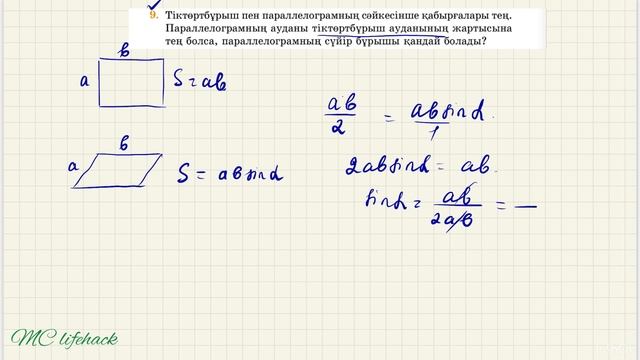 9. Тіктөртбұрыш пен параллелограмның сәйкесінше қабырғалары тең.
Параллелограмның ауданы тіктөртбұрыш ауданының жартысына
тең болса, параллелограмның сүйір бұрышы қандай болады?
b
a
S = ab
b
a
S = absinα
ab/2 = absinα/1
2absinα = ab.
sinα = ab/2ab = —
MC lifehack